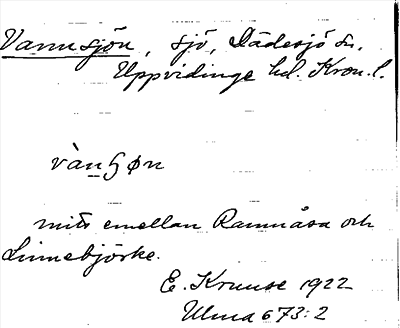 Vannsjön, sjö, Dädesjö sn,
Uppvidinge hd. Kron. l.
vànʃøn
mitt emellan Ramnåsa och
Linnebjörke.
E. Kruuse 1922
Ulma 673:2